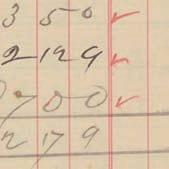 350 ✓
229 ✓
700 ✓
279